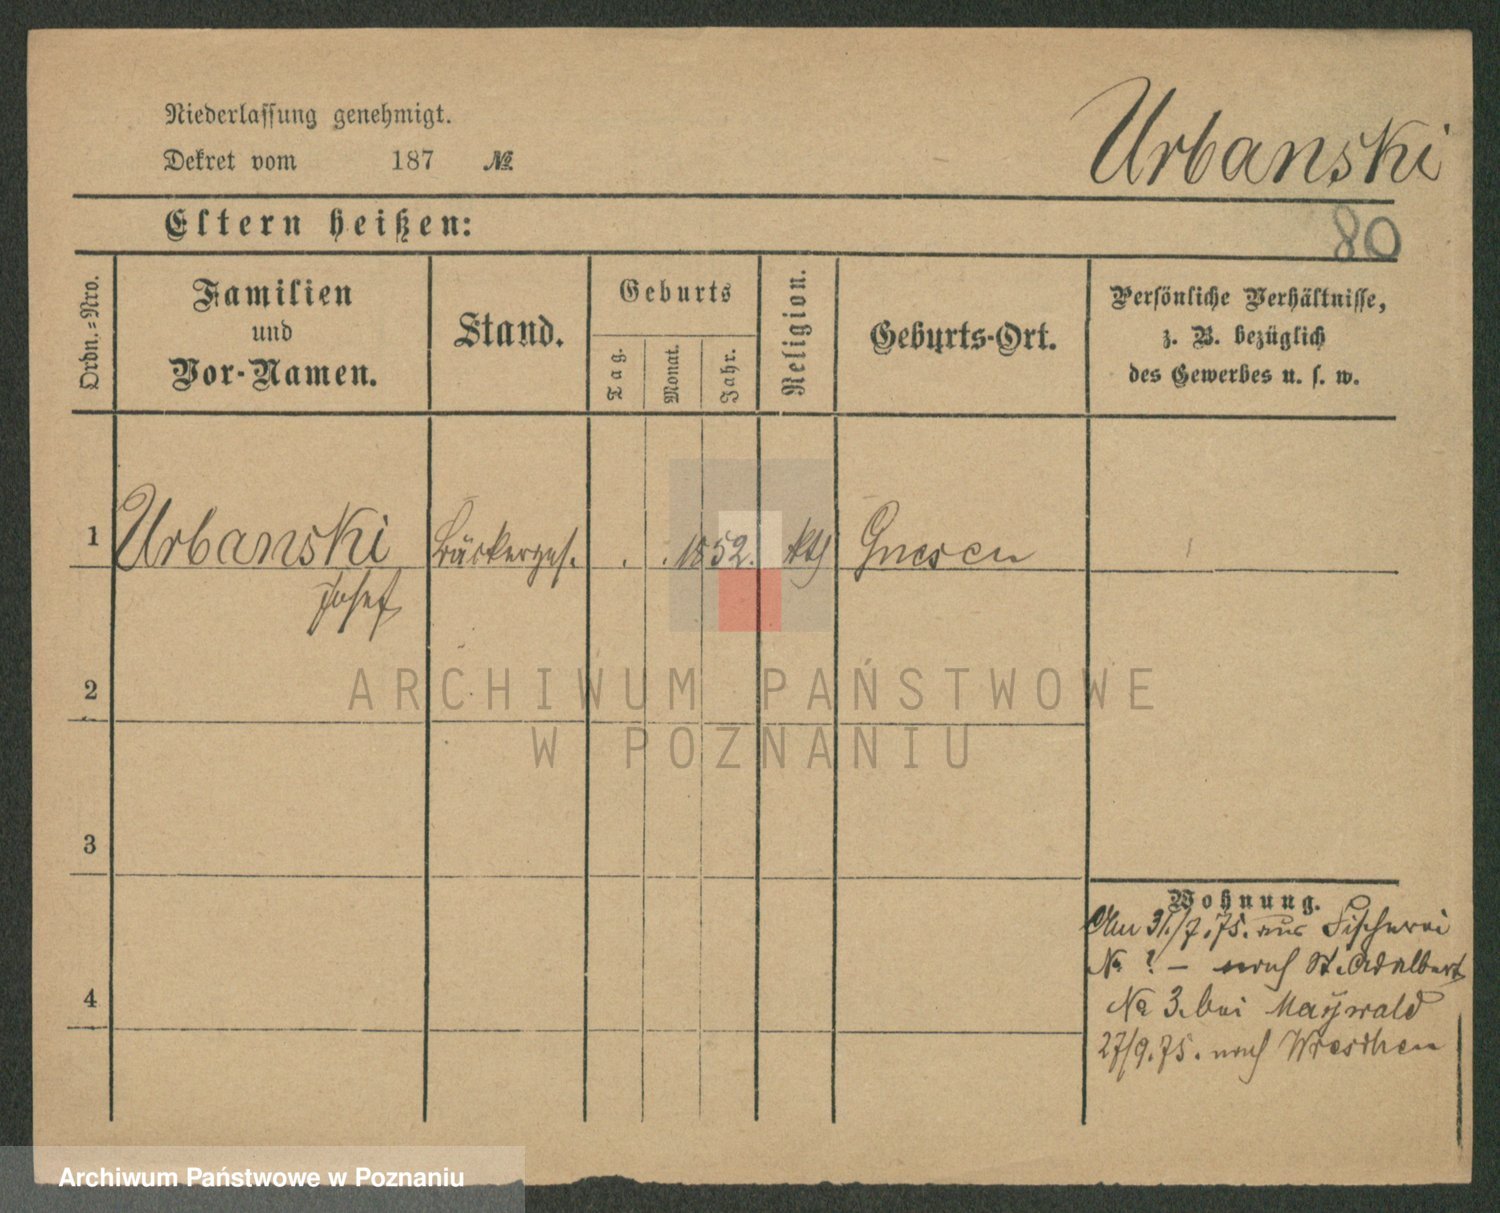 Niederlassung genehmigt.
Dekret vom 187 №
Urbanski
Eltern heißen:
80
Ordn.=Nro.
Familien
und
Vor-Namen.
Stand.
Geburts
Tag.
Monat.
Jahr.
Religion.
Geburts-Ort.
Persönliche Verhältnisse,
z. B. bezüglich
des Gewerbes u. s. w.
1 Urbanski Bäckerges. . . 1852. kth Gnesen
Josef
2
3
4
Wohnung.
Am 31./7.75. aus Fischerei
№ ? – nach St. Adalbert
№ 3. bei Maywald
27/9.75. nach Wreschen
ARCHIWUM PAŃSTWOWE
W POZNANIU
Archiwum Państwowe w Poznaniu